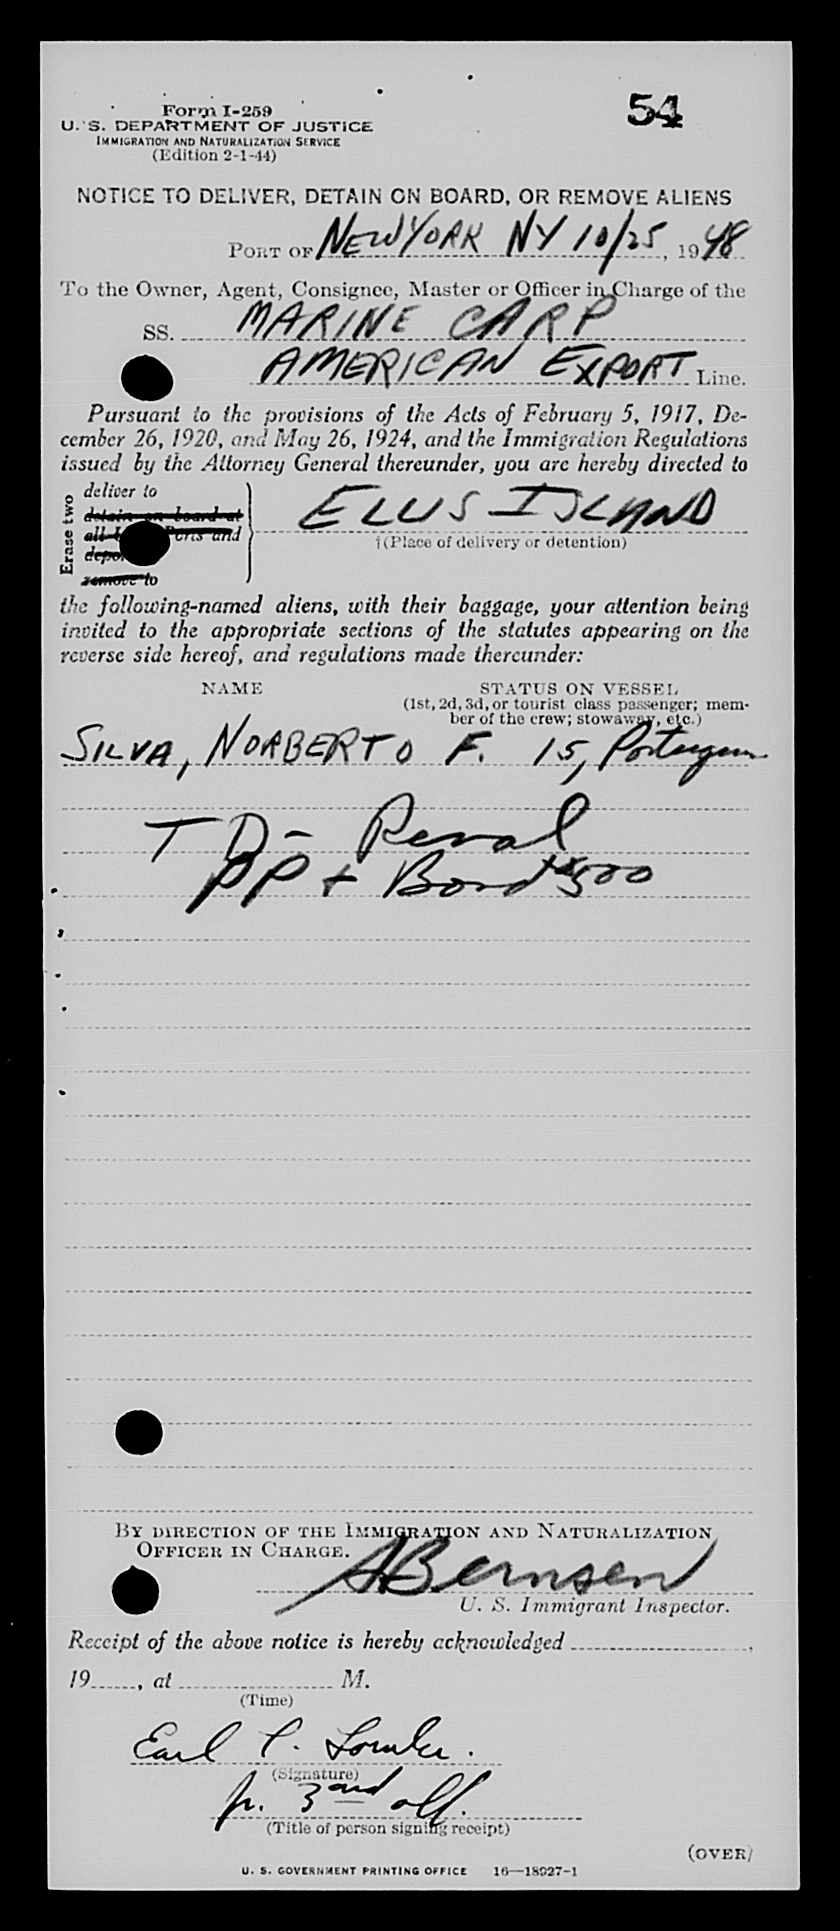 54
Form I-259
U. S. DEPARTMENT OF JUSTICE
IMMIGRATION AND NATURALIZATION SERVICE
(Edition 2-1-44)
NOTICE TO DELIVER, DETAIN ON BOARD, OR REMOVE ALIENS
PORT OF NEW YORK NY 10/25, 1948
To the Owner, Agent, Consignee, Master or Officer in Charge of the
SS. MARINE CARP
AMERICAN EXPORT Line.
Pursuant to the provisions of the Acts of February 5, 1917, De-
cember 26, 1920, and May 26, 1924, and the Immigration Regulations
issued by the Attorney General thereunder, you are hereby directed to
Erase two
deliver to
detain on board at
all Ports and
remove to
ELLIS ISLAND
†(Place of delivery or detention)
the following-named aliens, with their baggage, your attention being
invited to the appropriate sections of the statutes appearing on the
reverse side hereof, and regulations made thereunder:
NAME STATUS ON VESSEL
(1st, 2d, 3d, or tourist class passenger; mem-
ber of the crew; stowaway, etc.)
SILVA, NORBERTO F. 15, Portuguese
T D -
PP + Bond $500
BY DIRECTION OF THE IMMIGRATION AND NATURALIZATION
OFFICER IN CHARGE.
ABernsen
U. S. Immigrant Inspector.
Receipt of the above notice is hereby acknowledged ,
19 , at M.
(Time)
Earl P.
(Signature)
Jr. 3rd off.
(Title of person signing receipt)
(OVER)
U. S. GOVERNMENT PRINTING OFFICE 16—18927-1